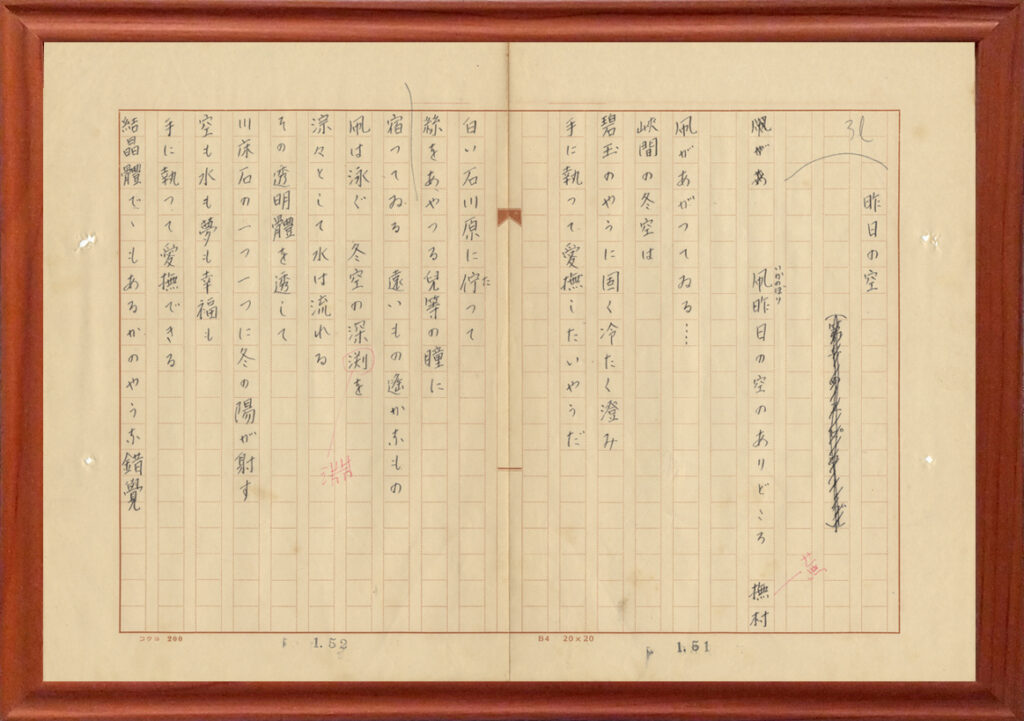 3L
昨日の空
凧があ
凧昨日の空のありどころ 撫村
いかのぼり
蕪
凧があがつてゐる…
峽間の冬空は
碧玉のやうに固く冷たく澄み
手に執つて愛撫したいやうだ
白い石川原に佇つて
た
綠をあやつる兒等の瞳に
宿つてゐる 遠いもの遙かなもの
凧は泳ぐ 冬空の深渕を
淙々として水は流れる
その透明體を透して
川床石の一つ一つに冬の陽が射す
空も水も夢も幸福も
手に執つて愛撫できる
結晶體でゝもあるかのやうな錯覺
コクヨ 200
1.52
B4 20×20
1.51